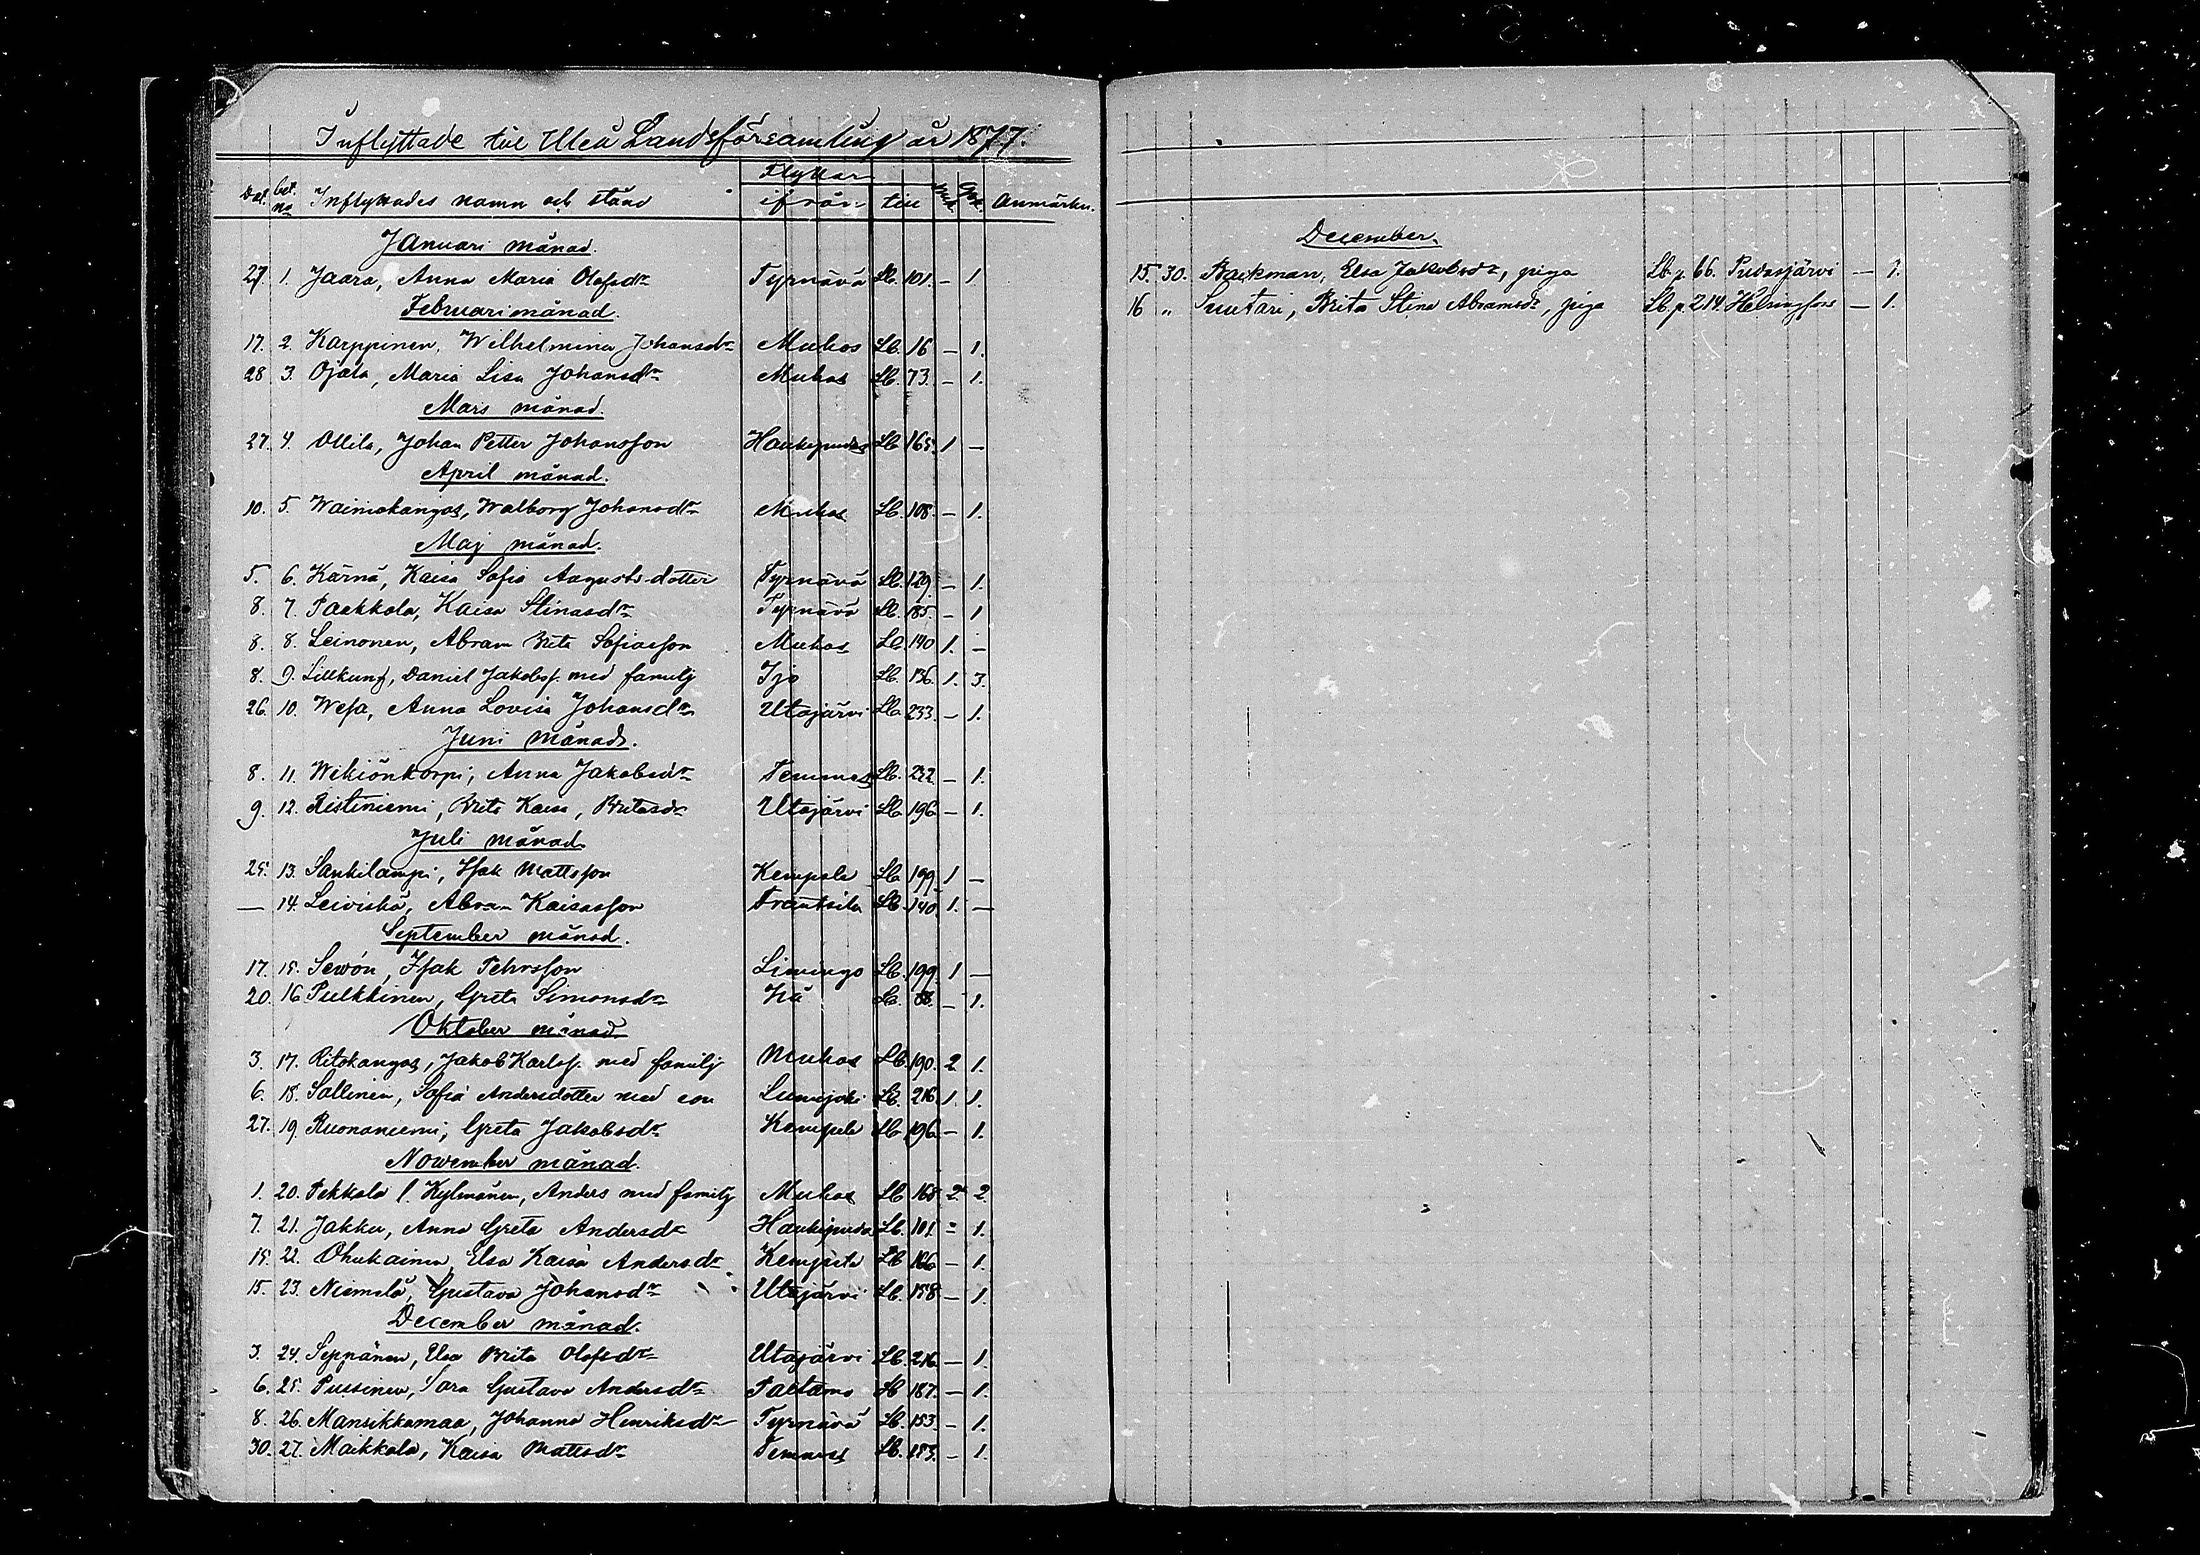 Inflyttade till Uleå Landsförsamling år 1877.
Flyttar
Dat. bet. no Inflyttades namn och stånd ifrån till Mank. Qvk. Anmärkn.
Januari månad.
27. 1. Jaara, Anna Maria Olofsdr Tyrnävä Lb. 101. — 1.
Februari månad.
17. 2. Karppinen, Wilhelmina Johansdr Muhos Lb. 16 — 1.
28 3. Ojala, Maria Lisa Johansdr Muhos Lb. 73. — 1.
Mars månad.
27. 4. Ollila, Johan Petter Johansson Haukipudas Lb. 165. 1 —
April månad.
10. 5. Wainiokangas, Walborg Johansdr Muhos Lb. 108. — 1.
Maj månad.
5. 6. Kärnä, Kaisa Sofia Augustsdotter Tyrnävä Lb. 129. — 1.
8. 7. Paakkola, Kaisa Stinasdr Tyrnävä Lb. 185. — 1
8. 8. Leinonen, Abram Brita Sofiasson Muhos Lb. 140 1. —
8. 9. Lillkung, Daniel Jakobsf. med familj Ijo Lb. 136. 1. 3.
26. 10. Wesa, Anna Lovisa Johansdr Utajärvi Lb. 233. — 1.
Juni månad.
8. 11. Wikiönkorpi, Anna Jakobsdr Temmes Lb. 232 — 1.
9. 12. Ristiniemi, Brita Kaisa, Britasdr Utajärvi Lb. 196 — 1.
Juli månad
25. 13. Sankilampi, Isak Mattsson Kempele Lb. 199 1 —
— 14. Leiviskä, Abram Kaisasson Frantsila Lb. 140 1. —
September månad.
17. 15. Sewón, Isak Pehrsson Limingo Lb. 199. 1 —
20. 16 Pulkkinen, Greta Simonsdr Lb. 88. — 1.
Oktober månad.
3. 17. Ritokangas, Jakob Karlsf. med familj Muhos Lb. 190. 2 1.
6. 18. Sallinen, Sofia Andersdotter med son Lumijoki Lb. 216 1. 1.
27. 19. Ruonaniemi, Greta Jakobsdr Kempele Lb. 196 — 1.
Nowember månad.
1. 20. Pekkala l. Kylmänen, Anders med familj Muhos Lb. 168 2. 2.
7. 21. Jakku, Anna Greta Andersdr Haukipudas Lb. 101. — 1.
15. 22. Ohukainen, Elsa Kaisa Andersdr Kempele Lb. 166 — 1.
15. 23. Niemelä, Gustava Johansdr Utajärvi Lb. 158 — 1.
December månad.
3. 24. Seppänen, Elsa Brita Olofsdr Utajärvi Lb. 216 — 1.
6. 25. Pussinen, Sara Gustava Andersdr Paltamo Lb. 187. — 1.
8. 26. Mansikkamaa, Johanna Henriksdr Tyrnävä Lb. 153 — 1.
30. 27. Maikkola, Kaisa Mattsdr Temmes Lb. 153. — 1.
December.
15. 30. Backman, Elsa Jakobsdr, piga Lb. p. 66. Pudasjärvi — 1.
16 „ Suutari, Brita Stina Abramsdr, piga Lb. p. 214. Helsingfors — 1.